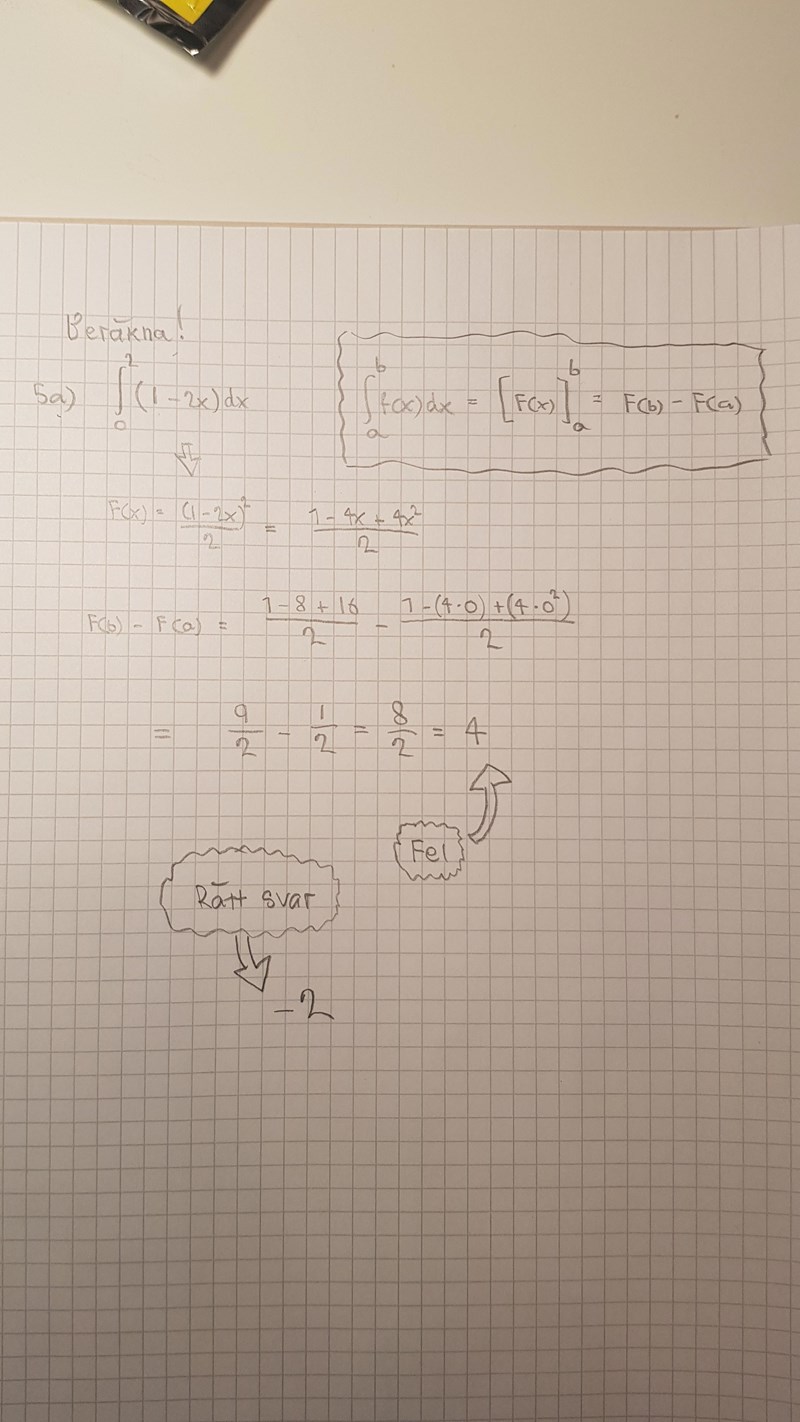 Beräkna!
5a) ∫₀² (1-2x)dx
∫ₐᵇ f(x)dx = [F(x)]ₐᵇ = F(b) - F(a)
F(x) = (1-2x)²/2 = (1-4x+4x²)/2
F(b) - F(a) = (1-8+16)/2 - (1-(4·0)+(4·0²))/2
= 9/2 - 1/2 = 8/2 = 4
Fel
Rätt svar
-2